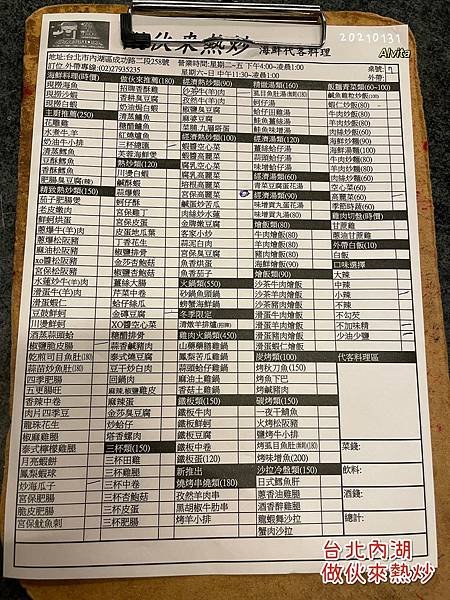 做伙來熱炒 海鮮代客料理
20210131
Alvita
地址:台北市內湖區成功路二段258號
訂位.外帶專線:(02)27935235
營業時間:星期二~五 下午4:00~凌晨1:00
星期六~日 中午11:30~凌晨1:00
桌號:
外帶:
海鮮料理(時價)
現撈海魚
現撈沙蝦
現撈白蝦
主廚推薦(250)
花雕雞
水煮牛.羊
奶油牛小排
清蒸鱈魚
豆酥鱈魚
香蒜鱈魚
肥腸臭豆腐(辣)
精致熱炒類(150)
茄子肥腸煲
老皮嫩肉
鮮蚵烘蛋
蔥爆牛(羊)肉
蔥爆松阪豬
麻油松阪豬
xo醬松阪豬
宮保松阪豬
水蓮炒牛(羊)肉
滑蛋牛(羊)肉
滑蛋蝦仁
豆豉鮮蚵
川燙鮮蚵
酒蒸蒜頭蛤
脆皮鮮蚵
乾煎可目魚肚(180)
蒜苗炒魚肚(180)
四季肥腸
五更腸旺
香辣中卷
肉片四季豆
龍珠花生
椒麻雞腿
泰式檸檬雞腿
月亮蝦餅
鳳梨蝦球
炒海瓜子
宮保肥腸
脆皮肥腸
宮保魷魚刺
做伙來推薦(180)
招牌香酥雞
香蒜臭豆腐
奶油焗白蝦
清蒸鱸魚
糖醋鱸魚
紅燒鱸魚
三杯總匯
芙蓉海鮮煲
熱炒類(120)
川燙白蝦
鹹酥蝦
蒜爆蝦
蚵仔酥
宮保雞丁
宮保皮蛋
皮蛋地瓜葉
丁香花生
椒鹽排骨
金沙杏鮑菇
椒鹽杏鮑菇
薑絲大腸
芹菜中卷
蛤仔絲瓜
螃蟹海鮮
XO醬空心菜
糖醋排骨
蒜香鹹豬肉
泰式嫩豆腐
豆干炒白肉
回鍋肉
麻辣.椒鹽雞皮
麻辣蛋
金莎臭豆腐
炒蛤仔
塔香螺肉
三杯類(150)
三杯田雞
三杯中卷
三杯杏鮑菇
三杯皮蛋
三杯肥腸
經濟熱炒類(90)
沙茶牛(羊)肉
孜然牛(羊)肉
椒鹽臭豆腐
麻婆豆腐
菜脯.九層塔蛋
經濟熱炒類(100)
蝦醬空心菜
蝦醬高麗菜
腐乳高麗菜
培根高麗菜
宮保高麗菜
鹹蛋炒苦瓜
肉絲炒水蓮
金牌嫩豆腐
客家小炒
蒜泥白肉
宮保臭豆腐
魚香烘蛋
魚香茄子
火鍋類(550)
砂鍋魚頭鍋
冬季限定
清燉羊排爐(招牌)
雞肉火鍋類(450)
山藥藥膳雞鍋
鳳梨苦瓜雞鍋
蒜頭蛤仔雞鍋
麻油土雞鍋
香菇土雞鍋
鐵板類(150)
鐵板牛肉
鐵板鮮蚵
鐵板豆腐
鐵板蛋(120)
新推出
燒烤串燒類(180)
孜然羊肉串
黑胡椒牛肋串
烤羊小排
精緻湯類(160)
虱目魚肚湯(鮮)(180)
蚵仔湯
鮭魚豆腐湯
鮭魚薑絲湯
鮭魚味增湯
經濟湯類(120)
薑絲蛤仔湯
蒜頭蛤仔湯
味增蛤仔湯
青菜豆腐蛋花湯
經濟湯類(90)
味增貢丸蛋花湯
味增貢丸湯
燴飯類(80)
牛肉燴飯
羊肉燴飯
豬肉燴飯
海鮮燴飯
燴飯類(90)
沙茶牛肉燴飯
沙茶羊肉燴飯
沙茶豬肉燴飯
滑蛋牛肉燴飯
滑蛋豬肉燴飯
滑蛋蝦仁燴飯
炭烤類(100)
烤秋刀魚(150)
烤魚下巴
烤鹹豬肉
碳烤類(150)
一夜干鯖魚
火烤松阪豬
鹽烤牛小排
烤虱目魚肚(鮮)(180)
烤味增魚(200)
沙拉冷盤類(150)
日式鱈魚肝
蔥香油雞腿
酒香醉雞腿
龍蝦舞沙拉
蟹肉沙拉
飯麵青菜類(60~100)
鹹魚雞粒炒飯(100)
蝦仁炒飯(80)
牛肉炒飯(80)
羊肉炒飯(80)
肉絲炒飯(80)
海鮮炒麵(100)
海鮮湯麵(100)
牛肉炒麵(80)
羊肉炒麵(80)
肉絲炒麵(80)
空心菜(60)
高麗菜(60)
季節時蔬(60)
雞肉切盤(時價)
甘蔗雞
蔥油甘蔗雞
外帶白飯(10)
白飯
口味選擇
大辣
中辣
小辣
不辣
不勾芡
不加味精
少油少鹽
代客料理區
菜錢:
飲料:
酒錢:
總計:
台北內湖
做伙來熱炒